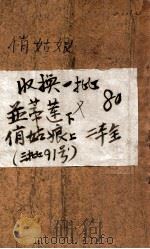 俏姑娘
收换一批
並蒂莲下 80
俏姑娘上 二本全
(三批91号)